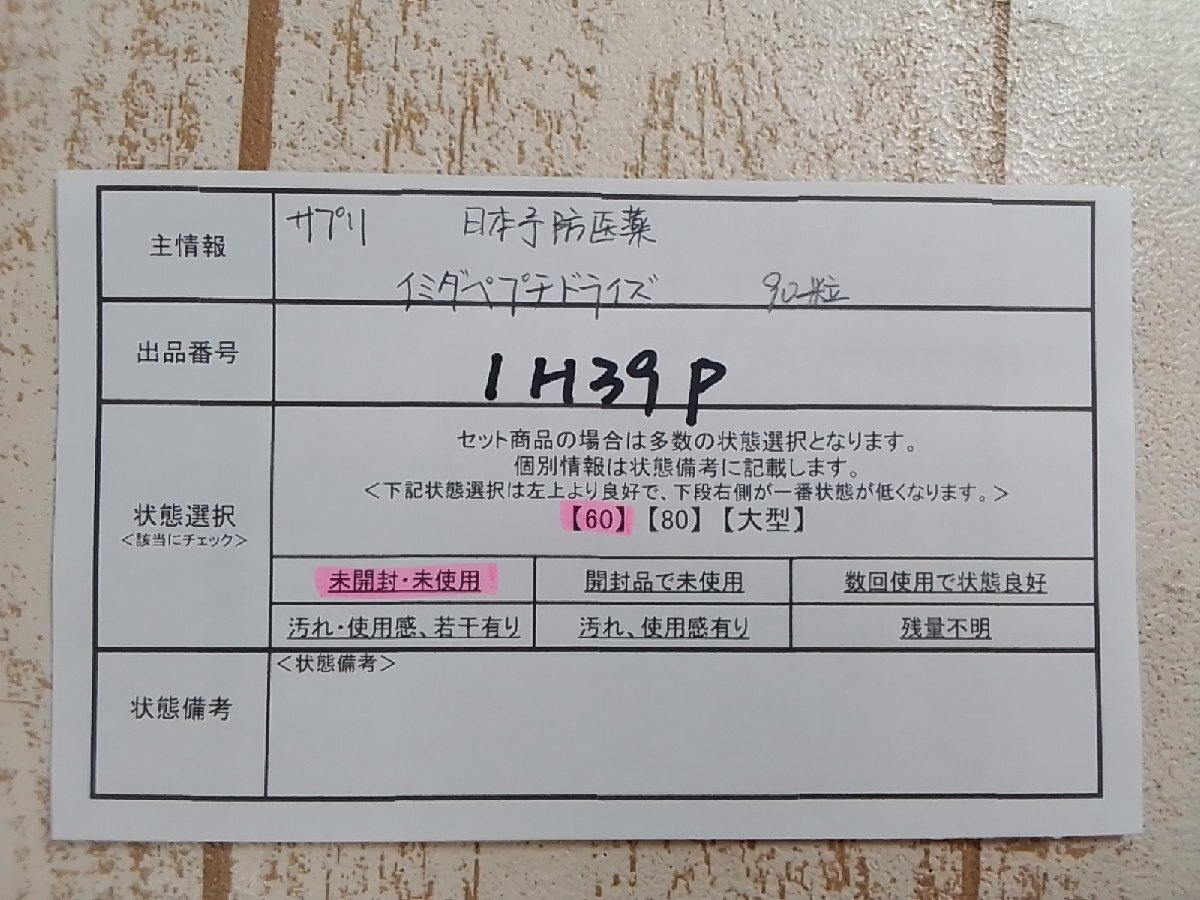 主情報
サプリ 日本予防医薬
イミダペプチドライズ 90粒
出品番号
1H39P
状態選択
<該当にチェック>
セット商品の場合は多数の状態選択となります。
個別情報は状態備考に記載します。
<下記状態選択は左上より良好で、下段右側が一番状態が低くなります。>
【60】【80】【大型】
未開封・未使用 開封品で未使用 数回使用で状態良好
汚れ・使用感、若干有り 汚れ、使用感有り 残量不明
状態備考
<状態備考>